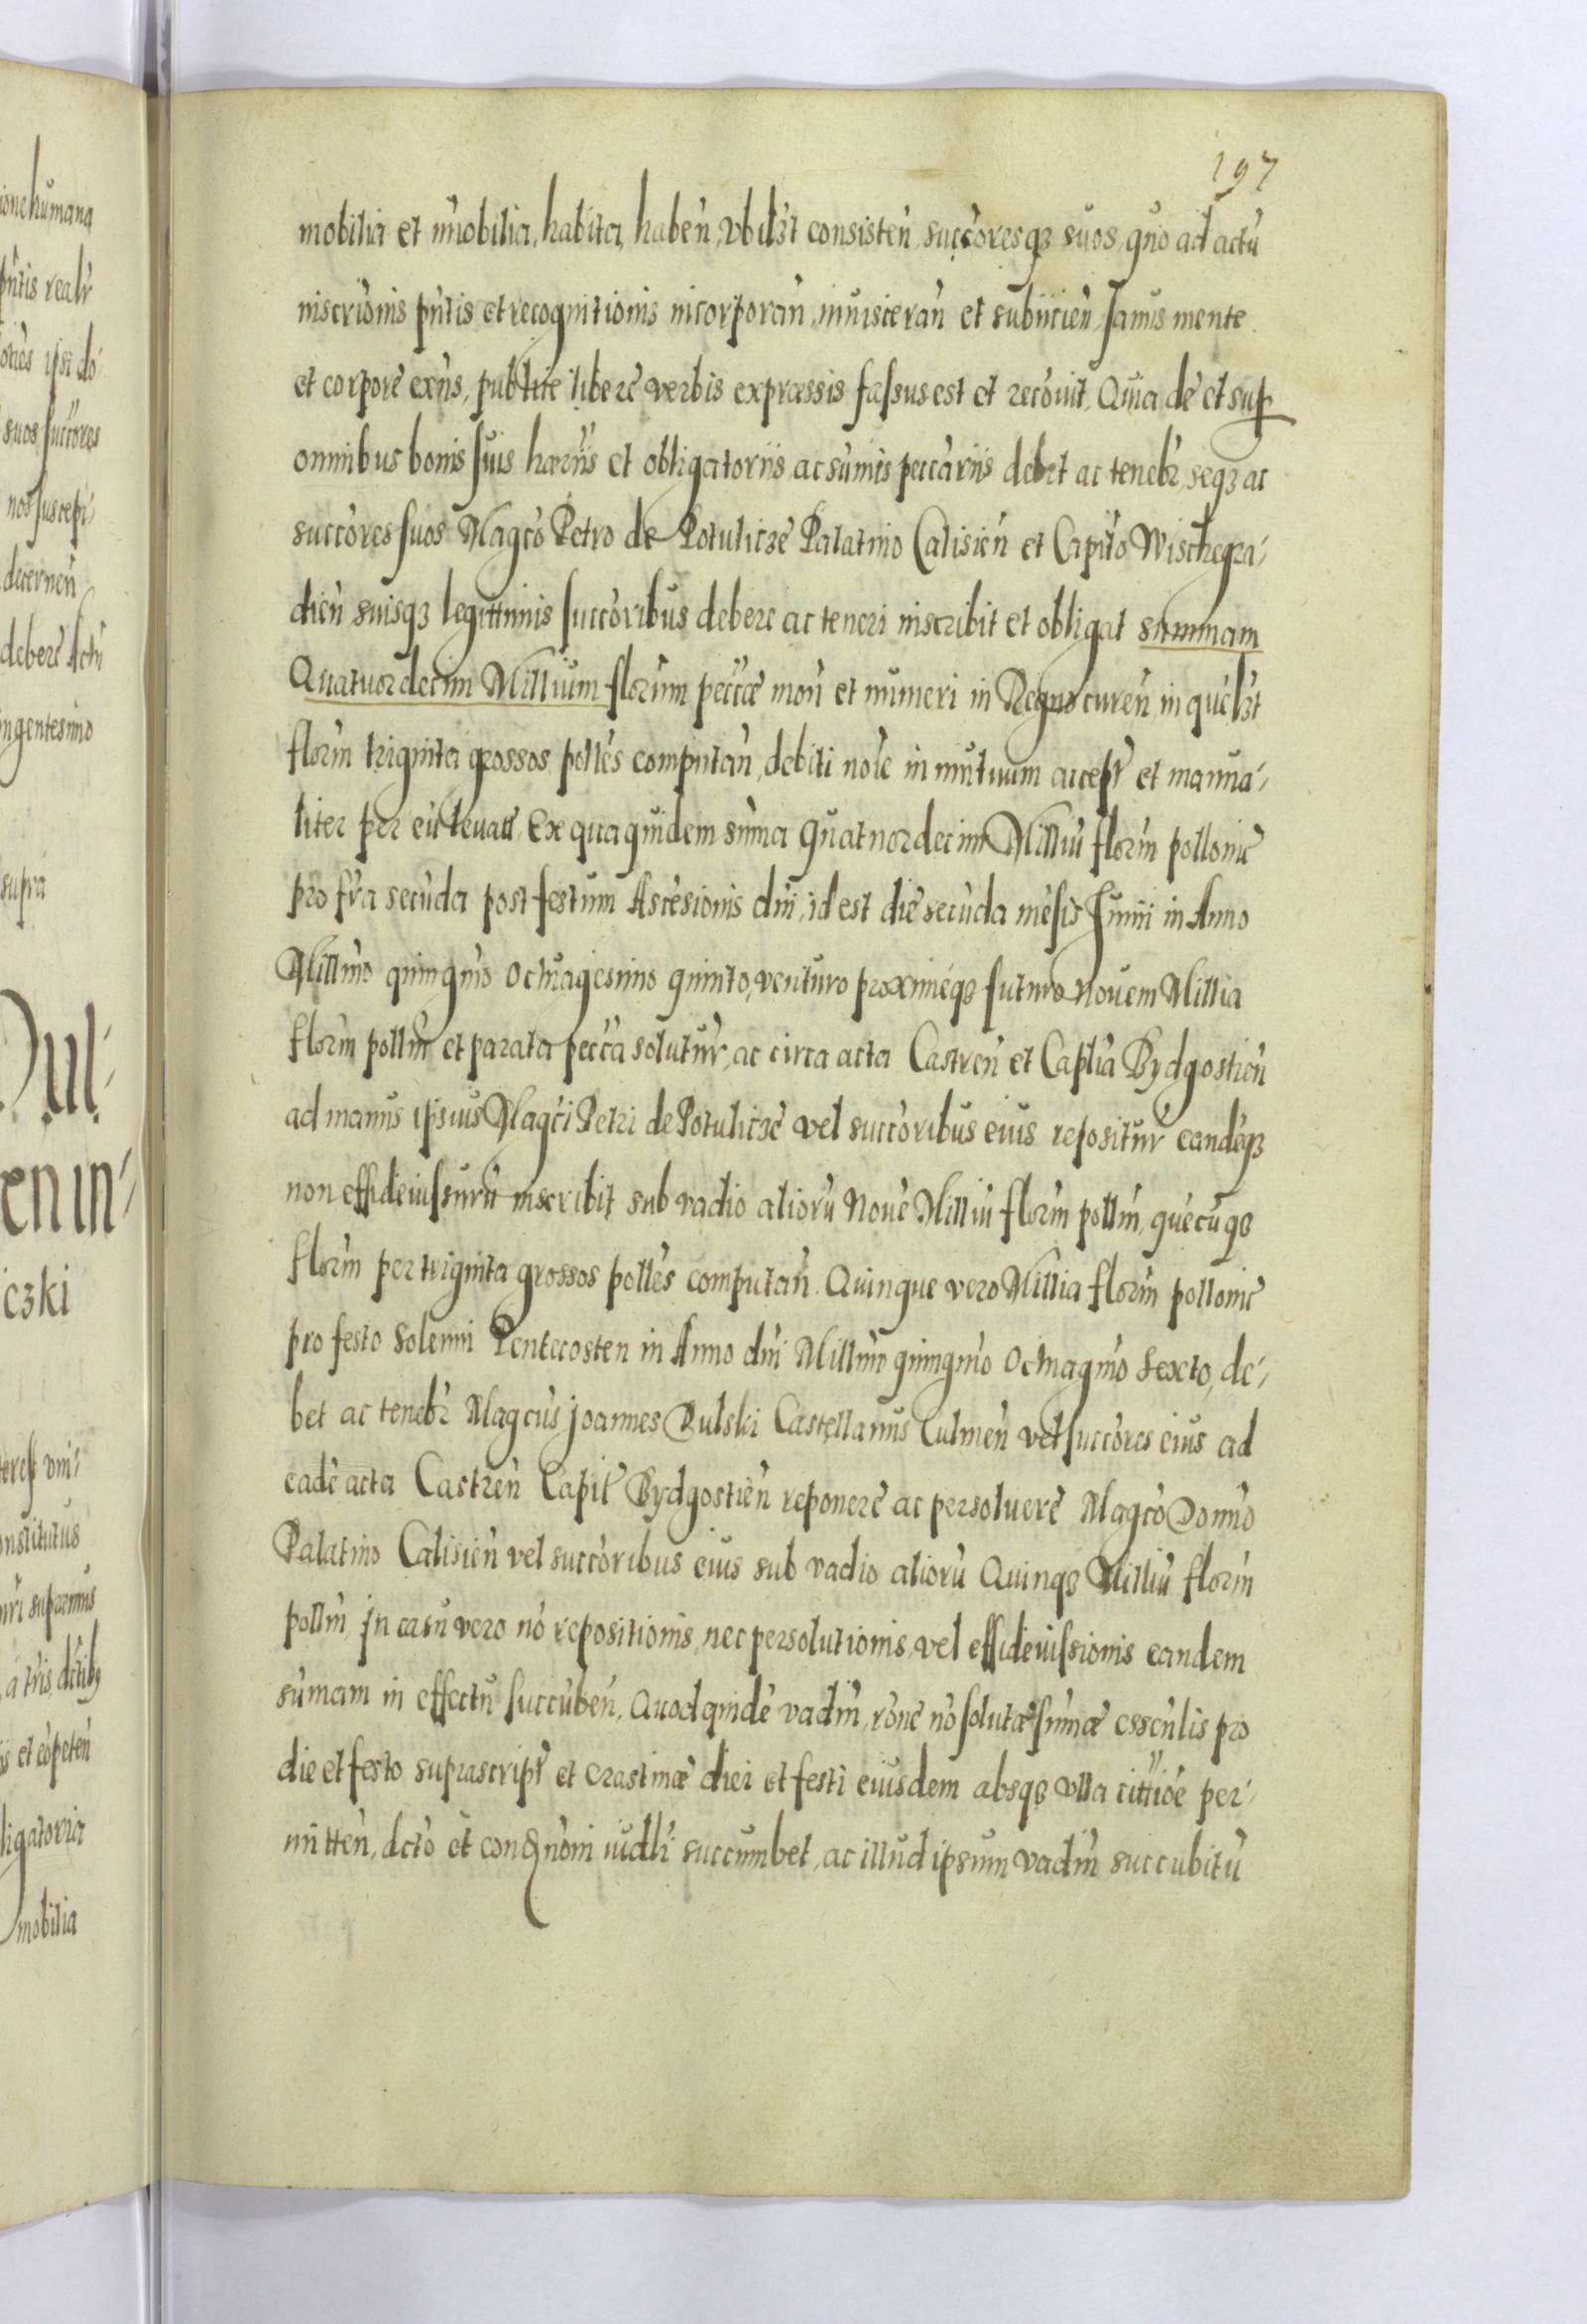 197
mobilia et im̄obilia, habita, habeñ, vbilȝt consisteñ, succ̄oresqȝ suos, quo ad actū
inscrīonis pn̄tis et recognitionis incorporañ, inuisceran̄ et subiicieñ, Sanus mente
et corpore exñs, publice libere verbis expraessis fassus est et recōuit, Quia de et sup
omnibus bonis suis haerīis et obligatoriis ac sum̄is pecc̄ariis debet ac tenebr̄ seqȝ ac
succ̄ores suos Magc̄o Petro de Potulicze Palatino Calisieñ et Capit̄o Wischegra-
dieñ suisqȝ legittimis succ̄oribus debere ac teneri inscribit et obligat summam
Quatuordecim Millium flor̄im pecc̄ae moñ et numeri in Regno cureñ, in quelȝt
flor̄in triginta grossos polles̄ computañ, debiti nōie in mutuum accept̄ et manua-
liter per eū leuat̄. Ex qua quidem sum̄a Quatuordecim Milliū flor̄in pollonic̄
pro fr̄a secūda post festum Ascēsionis dn̄i, id est die secūda mēsis Junii in Anno
Millm̄o quingm̄o Octuagesimo quinto, venturo proximeqȝ futuro Nouem Millia
flor̄in pollin̄ et parata pecc̄a solutur̄, ac circa acta Castreñ et Capl̄ia Bydgostieñ
ad manus ipsius Magc̄i Petri de Potulicze vel succ̄oribus eius repositur̄ eandēqȝ
non effideiussurū inscribit sub vadio aliorū Nouē Milliū flor̄in pollin̄, quecūqȝ
flor̄in per triginta grossos polles̄ computañ. Quinque vero Millia flor̄in pollonic̄
pro festo Solenni Pentecosten in Anno dn̄i Millm̄o quingm̄o Octuagm̄o Sexto, de-
bet ac tenebr̄ Magc̄us Joannes Dulski Castellanus Culmeñ vel succ̄ores eius ad
eadē acta Castreñ Capit̄ Bydgostieñ reponere ac persoluere Magc̄o Domn̄o
Palatino Calisieñ vel succ̄oribus eius sub vadio aliorū Quinqȝ Milliū flor̄in
pollin̄, In casu vero nō repositionis, nec persolutionis, vel effideiussionis eandem
sum̄am in effectu succūbeñ. Quod quidē vadiū, rōne nō solutae sum̄ae essēn̄lis pro
die et festo suprascript̄ et crastinae diei et festi eiusdem absqȝ vlla citt̄iōe per-
mitteñ, dct̄o et condn̄om iudlī succumbet, ac illud ipsum vadiū succubitū